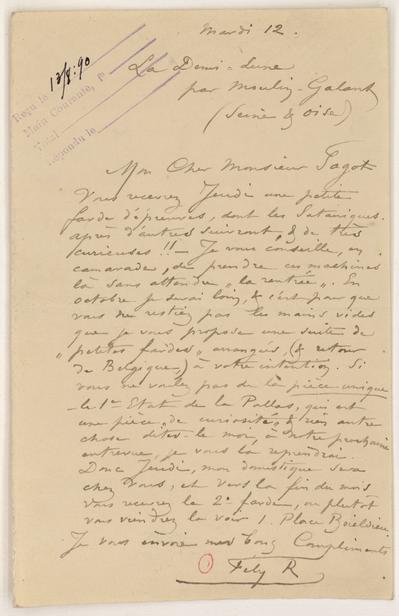 Mardi 12.
Reçu le 13/8/90
Main Courante, p.
Répondu le
La Demi-Lune
par Moulin-Galant
(Seine & Oise)
Mon Cher Monsieur Pagot
Vous recevrez Jeudi une petite
farde d'épreuves, dont les Sataniques.
après d'autres suivront, & de très
curieuses!! — Je vous conseille, en
camarade, de prendre ces machines
là sans attendre „la rentrée„. En
octobre je serai loin, & c'est pour que
vous ne restiez pas les mains vides
que je vous propose une suite de
„petites fardes„ arrangées, (& retour
de Belgique) à votre intention. Si
vous ne voulez pas de la pièce unique
- le 1er Etat de la Pallas, qui est
une pièce „de curiosité„ & rien autre
chose dites-le moi, à notre prochaine
entrevue, je vous la reprendrai.
Donc Jeudi, mon domestique sera
chez vous, et vers la fin du mois
vous recevrez la 2e farde, ou plutôt
vous viendrez la voir 1. Place Boieldieu.
Je vous envoie mes bons Compliments
Fély R